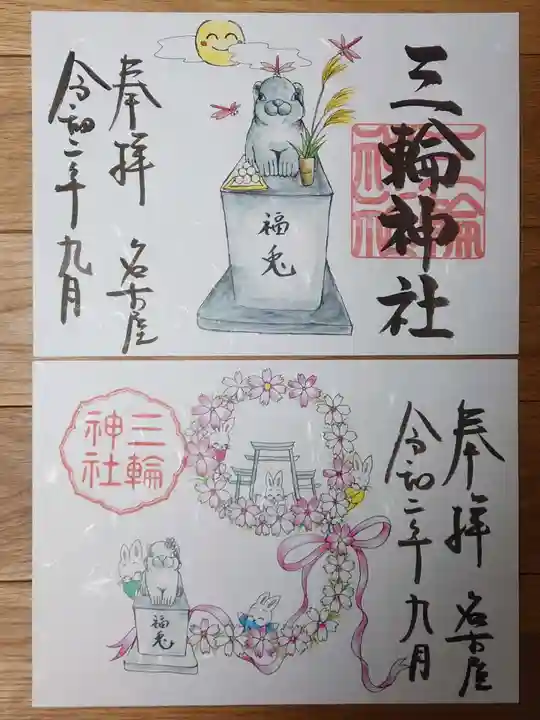 三輪神社
三輪神社
福兎
奉拝 名古屋
令和二年九月
奉拝 名古屋
令和二年九月
三輪神社
福兎